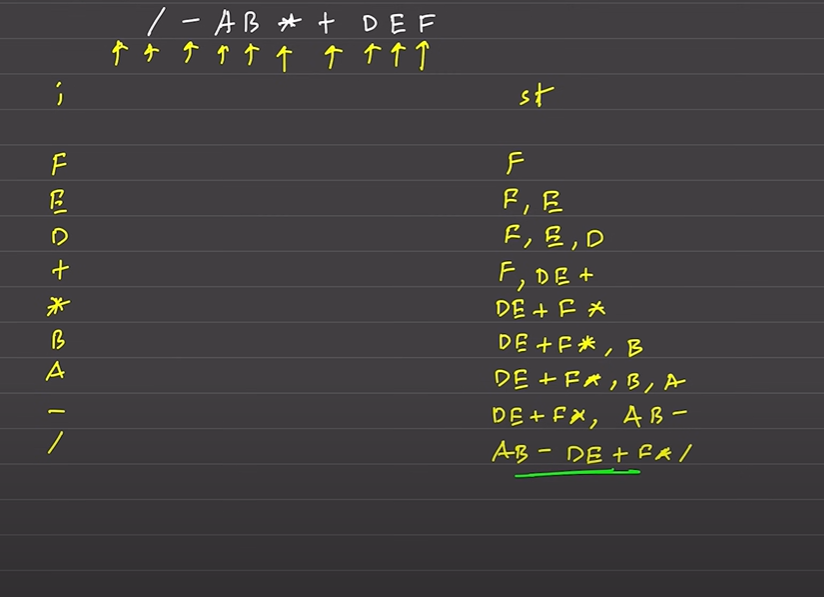 / - A B * + D E F
i st
F F
E F, E
D F, E, D
+ F, DE+
* DE+F*
B DE+F*, B
A DE+F*, B, A
- DE+F*, AB-
/ AB-DE+F*/